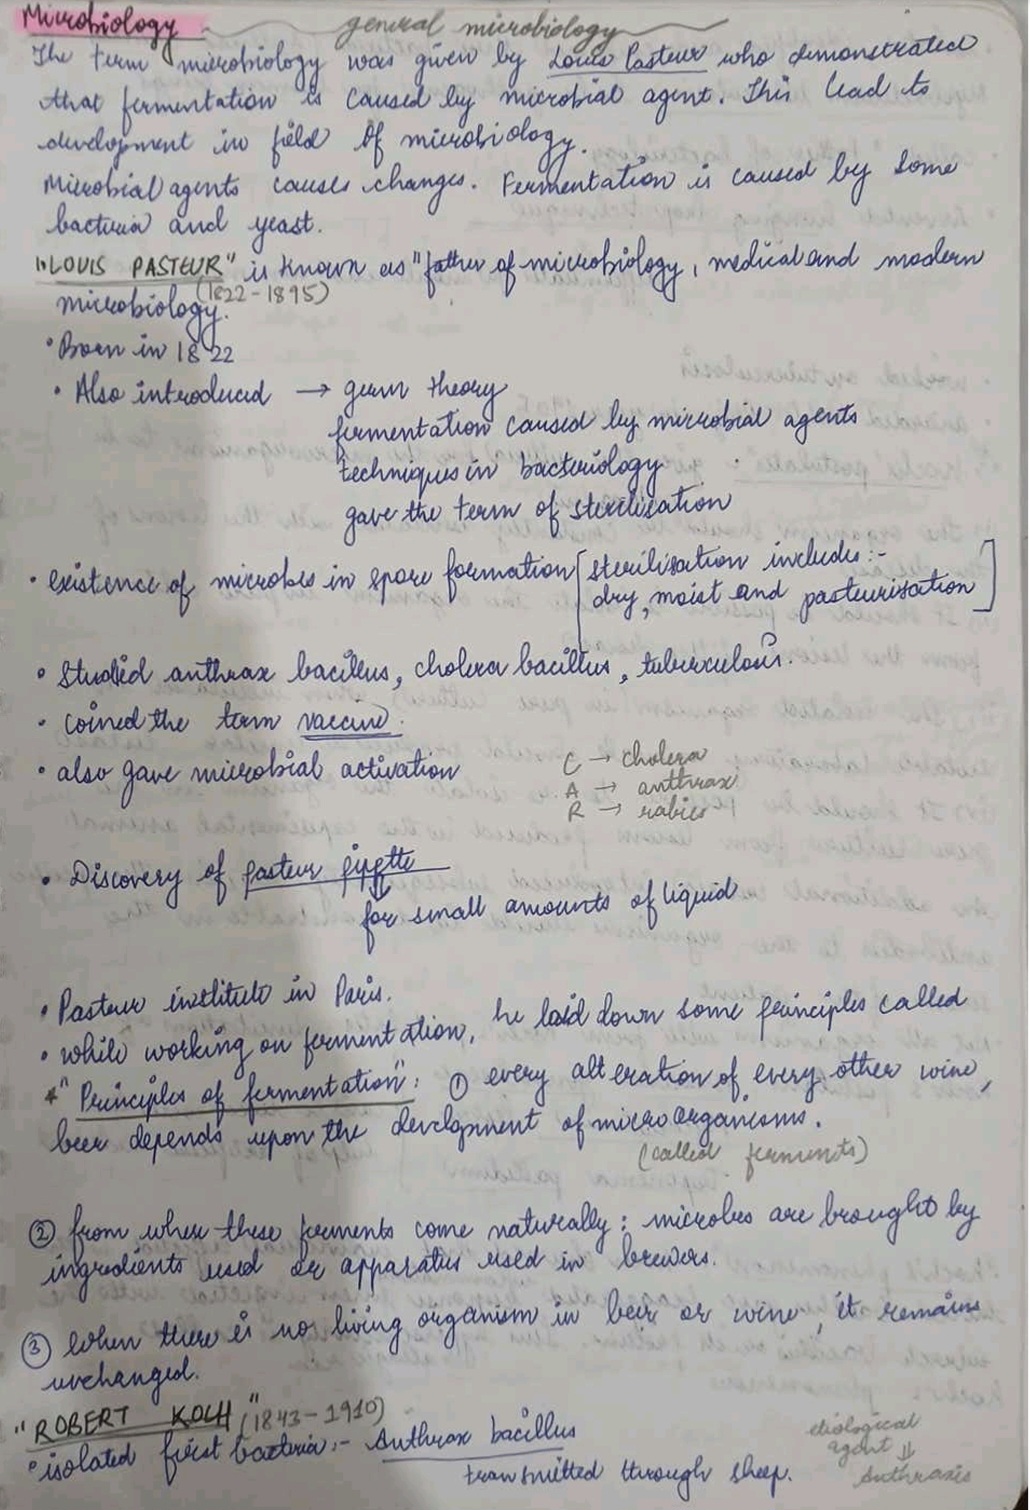 Microbiology general microbiology
The term microbiology was given by Louis Pasteur who demonstrated
that fermentation is caused by microbial agent. This lead to
development in field of microbiology.
Microbial agents causes changes. Fermentation is caused by some
bacteria and yeast.
"LOUIS PASTEUR" is known as "father of microbiology, medical and modern
microbiology. (1822-1895)
• Born in 1822
• Also introduced → germ theory
fermentation caused by microbial agents
techniques in bacteriology
gave the term of sterilisation
• existence of microbes in spore formation [sterilisation includes:-
dry, moist and pasteurisation]
• Studied anthrax bacillus, cholera bacillus, tuberculosis.
• coined the term vaccine.
• also gave microbial activation
C → cholera
A → anthrax
R → rabies
• Discovery of pasteur pipette
↓
for small amounts of liquid
• Pasteur institute in Paris.
• while working on fermentation, he laid down some principles called
* "Principles of fermentation": ① every alteration of every other wine,
beer depends upon the development of microorganisms.
(called ferments)
② from where these ferments come naturally: microbes are brought by
ingredients used or apparatus used in brewers.
③ when there is no living organism in beer or wine, it remains
unchanged.
"ROBERT KOCH" (1843-1910)
• isolated first bacteria:- Anthrax bacillus
transmitted through sheep.
etiological
agent ⇓
Anthraxis